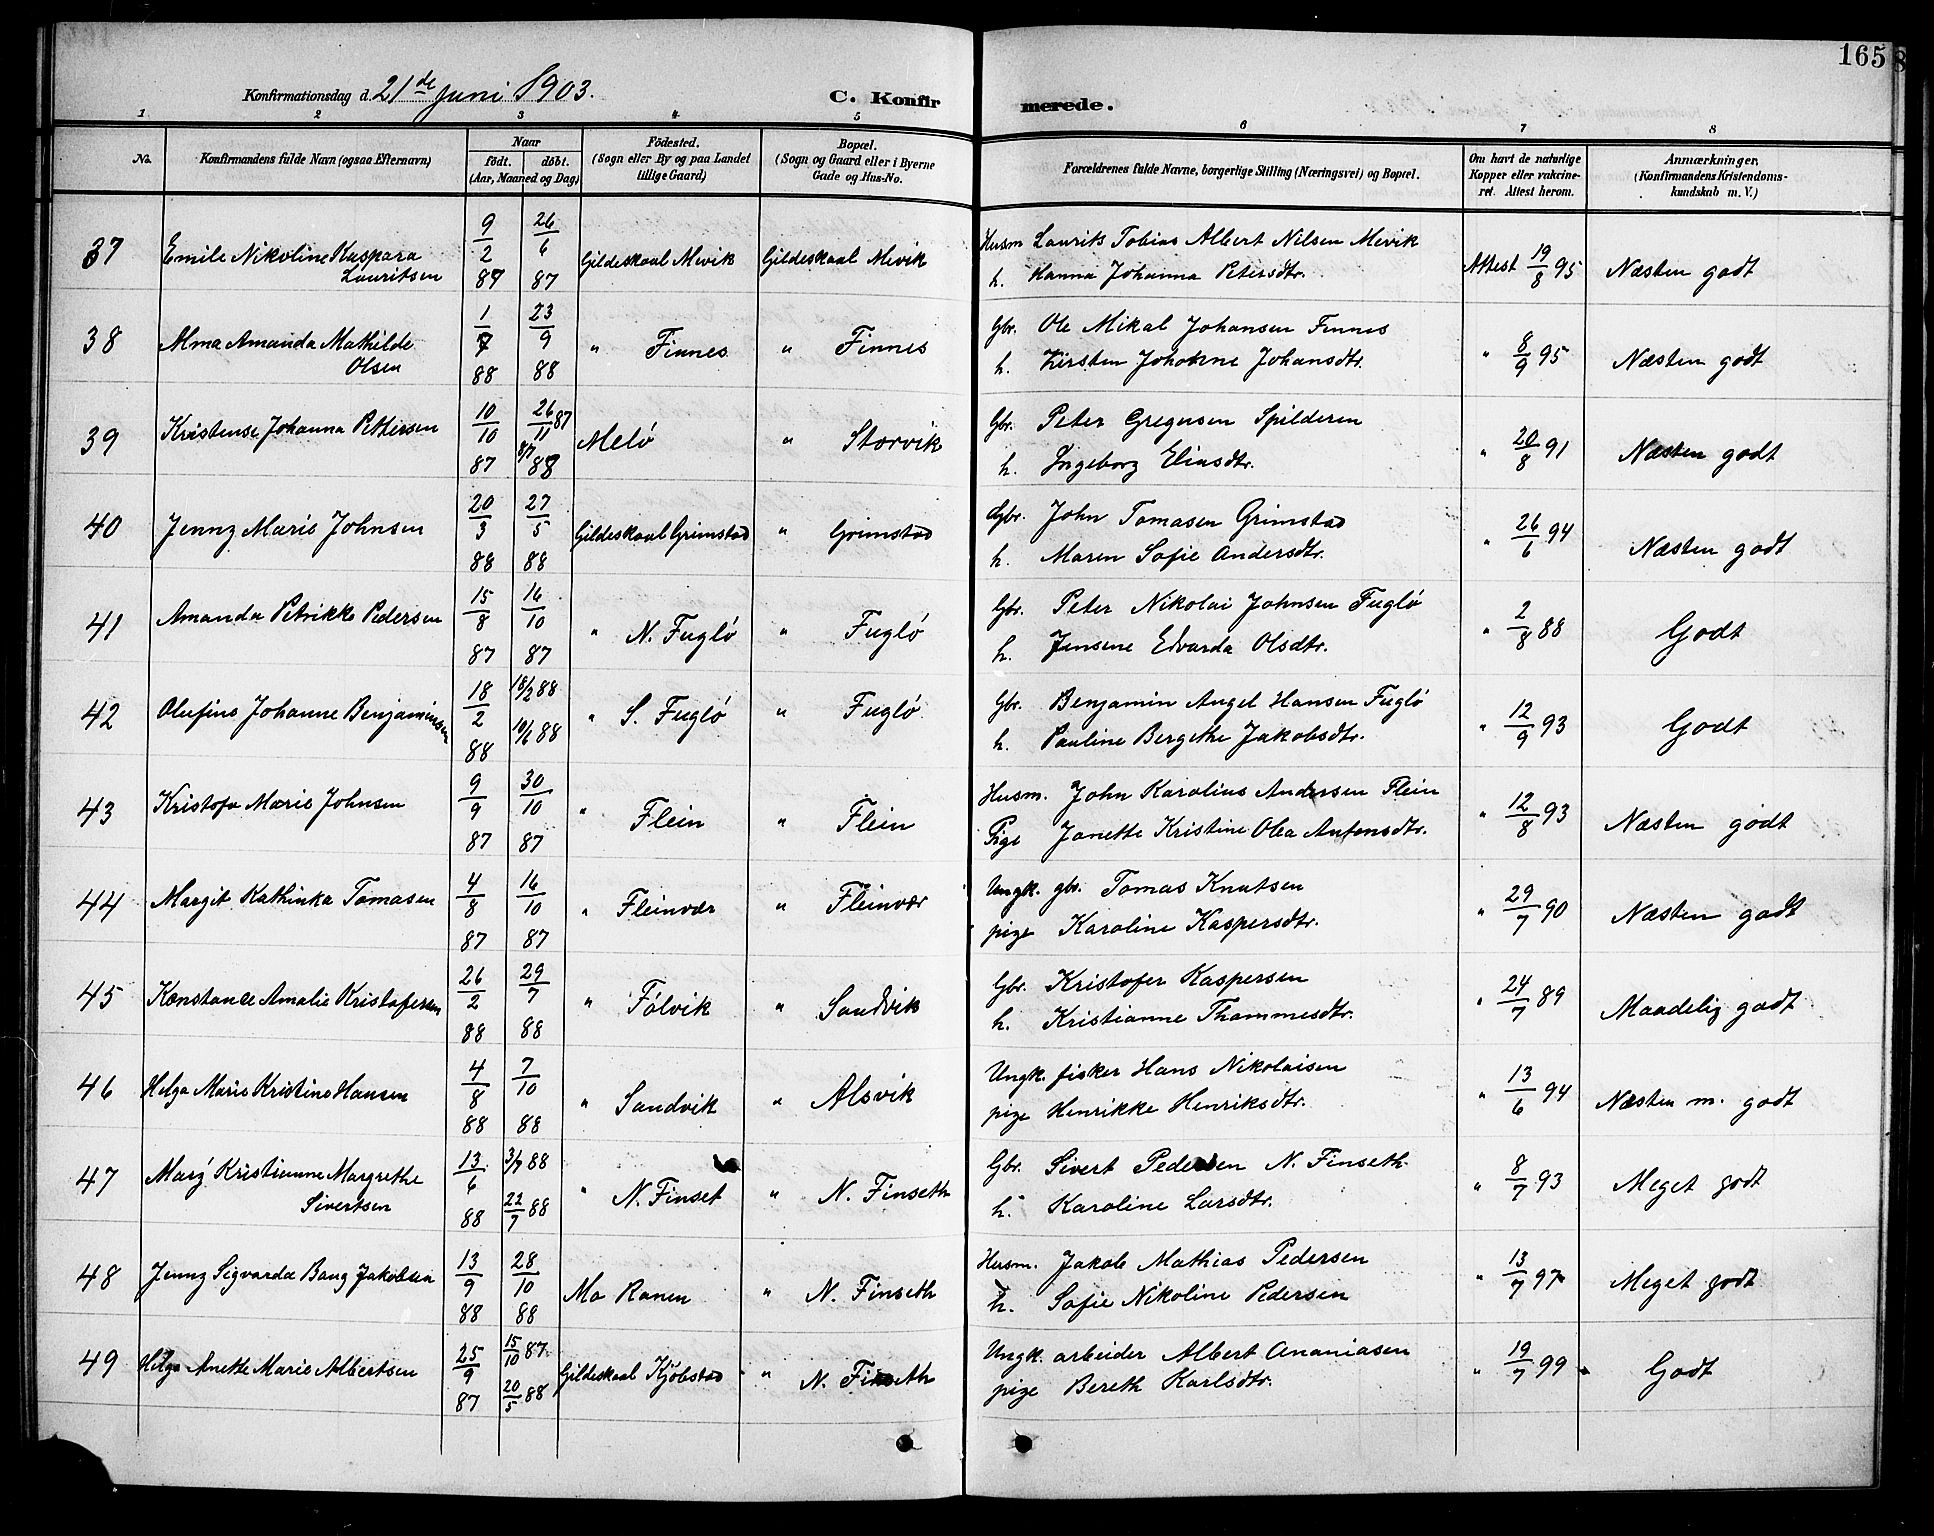 165
Konfirmationsdag d. 21de Juni 1903.
C. Konfirmerede.
1 2 3 4 5 6 7 8
No.
Konfirmandens fulde Navn (ogsaa Efternavn)
Naar
født. døbt.
(Aar, Maaned og Dag)
Födested.
(Sogn eller By og paa Landet
tillige Gaard)
Bopæl.
(Sogn og Gaard eller i Byerne
Gade og Hus-No.
Forældrenes fulde Navne, borgerlige Stilling (Næringsvei) og Bopæl.
Om havt de naturlige
Kopper eller vakcine-
ret. Attest herom.
Anmærkninger.
(Konfirmandens Kristendoms-
kundskab m. V.)
37 Emile Nikoline Kaspara Lauritsen 9/2 87 26/6 87 Gildeskaal Mevik Gildeskaal Mevik Husm Laurits Tobias Albert Nilsen Mevik
h. Hanna Johanna Petersdtr. Attest 19/8 95 Næsten godt
38 Alma Amanda Mathilde Olsen 1/7 88 23/9 88 " Finnes " Finnes Gbr. Ole Mikal Johansen Finnes
h. Kirsten Johanne Johansdtr. " 8/9 95 Næsten godt
39 Kristense Johanna Pettersen 10/10 87 26/11 87 8/7 88 Melö " Storvik Gbr. Peter Gregusen Spilderen
h. Ingeborg Eliasdtr. " 20/8 91 Næsten godt
40 Jenny Marie Johnsen 20/3 88 27/5 88 Gildeskaal Grimstad " Grimstad Gbr. John Tomasen Grimstad
h. Maren Sofie Andersdtr. " 26/6 94 Næsten godt
41 Amanda Petrikke Pedersen 15/8 87 16/10 87 " N. Fuglö " Fuglö Gbr. Peter Nikolai Johnsen Fuglö
h. Jensene Edvarda Olsdtr. " 2/8 88 Godt
42 Olufine Johanne Benjaminsen 18/2 88 18/2 88 10/6 88 " S. Fuglö " Fuglö Gbr. Benjamin Angel Hansen Fuglö
h. Pauline Bergithe Jakobsdtr. " 12/9 93 Godt
43 Kristofa Marie Johnsen 9/9 87 30/10 87 " Flein " Flein Husm. John Karolius Andersen Flein
Pige Janette Kristine Olea Antonsdtr. " 12/8 93 Næsten godt
44 Margit Kathinka Tomasen 4/8 87 16/10 87 " Fleinvær " Fleinvær Ungk. gbr. Tomas Knutsen
pige Karoline Kaspersdtr. " 29/7 90 Næsten godt
45 Konstance Amalie Kristofersen 26/2 88 29/7 88 " Fölvik " Sandvik Gbr. Kristofer Kaspersen
h. Kristianne Thommesdtr. " 24/7 89 Maadelig godt
46 Helga Marie Kristine Hansen 4/8 88 7/10 88 " Sandvik " Alsvik Ungk. fisker Hans Nikolaisen
pige Henrikke Henriksdtr. " 13/6 94 Næsten m. godt
47 Mary Kristianne Margrethe Sivertsen 13/6 88 3/7 88 22/7 88 " N. Finset " N. Finseth Gbr. Sivert Pedersen N. Finseth
h. Karoline Larsdtr. " 8/7 93 Meget godt
48 Jenny Sigvarda Bang Jakobsen 13/9 88 28/10 88 Mo Ranen " N. Finseth Husm. Jakob Mathias Pedersen
h. Sofie Nikoline Pedersen " 13/7 97 Meget godt
49 Helga Anette Marie Albertsen 25/9 87 15/10 87 20/5 88 Gildeskaal Kjöbstad " N. Finseth Ungk. arbeider Albert Ananiasen
pige Bereth Karlsdtr. " 19/7 99 Godt